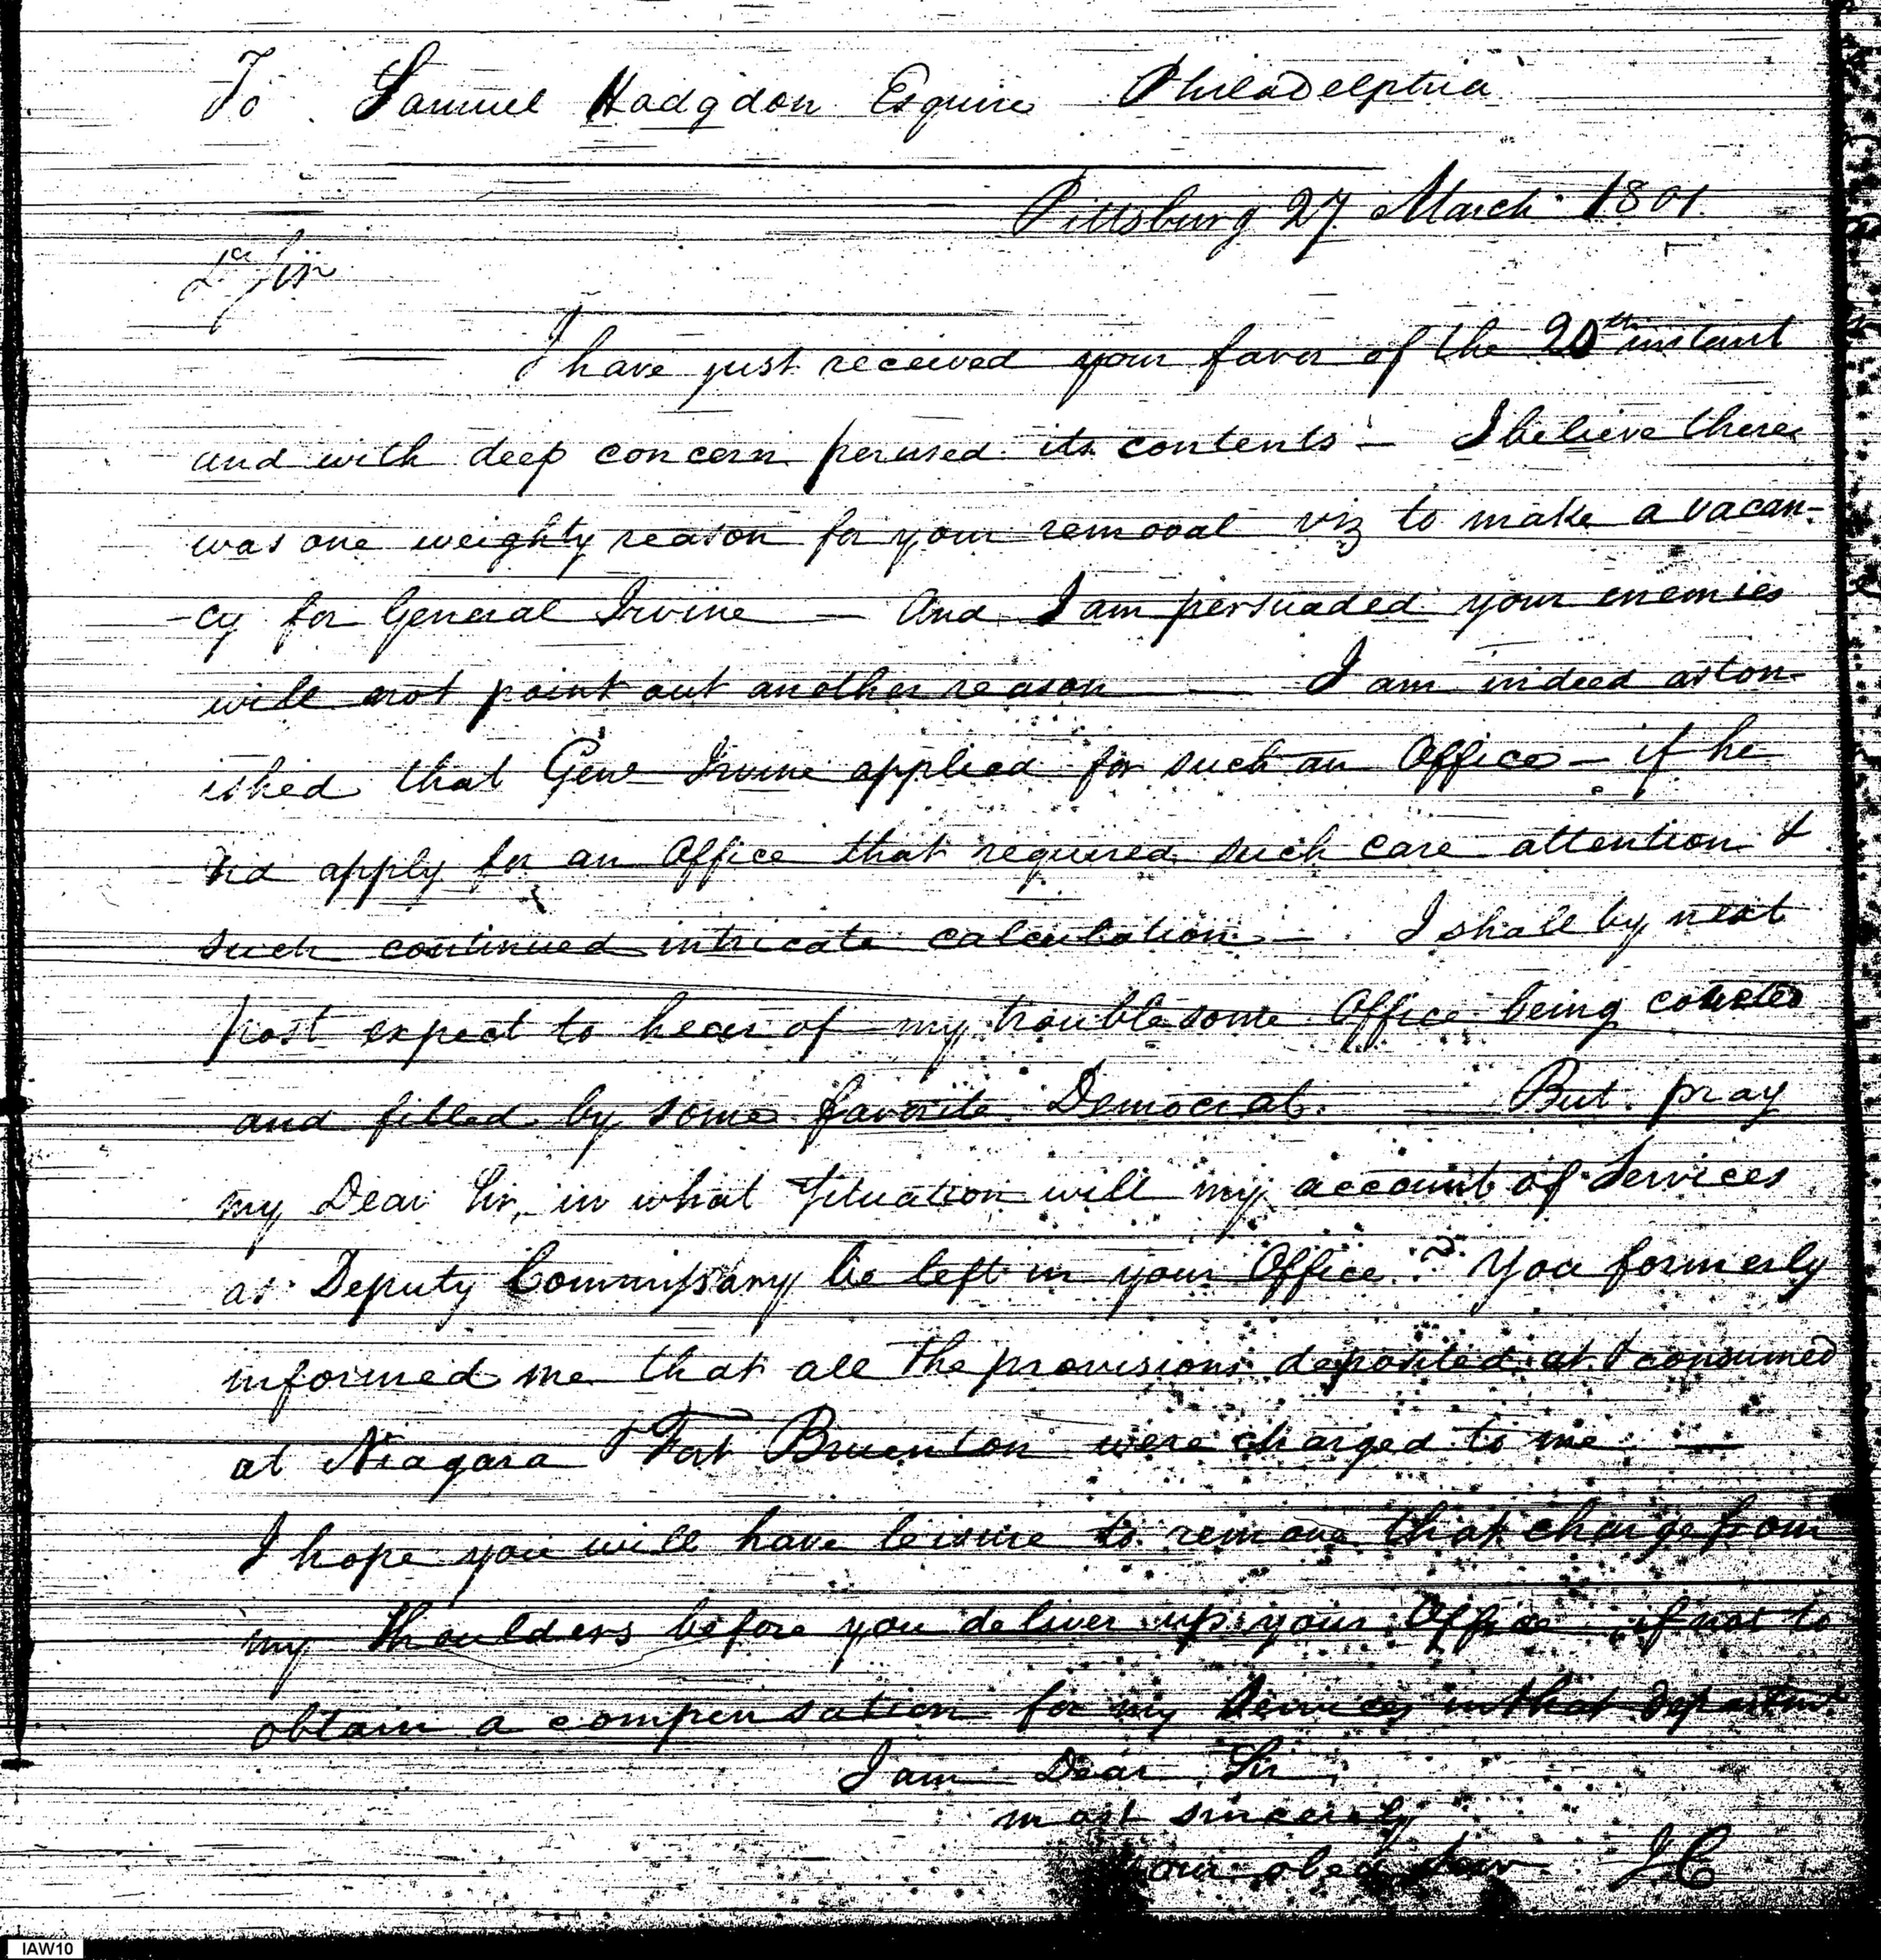 To Samuel Hadgdon Esquire Philadelphia
Pittsburg 27 March 1801.
Dr Sir
I have just received your favor of the 20th instant
and with deep concern perused its contents — I believe there
was one weighty reason for your removal viz to make a vacan-
-cy for General Irvine — And I am persuaded your enemies
will not point out another reason — I am indeed aston-
ished that Genl Irvine applied for such an Office — if he
did apply for an Office that required such care attention &
such continued intricate calculation — . I shall by next
post expect to hear of my troublesome Office being coveted
and filled by some favorite Democrat. — But pray
my Dear Sir, in what Situation will my account of Services
as Deputy Commissary be left in your Office? You formerly
informed me that all the provisions deposited at & consumed
at Niagara & Fort Bruenton were charged to me —
I hope you will have leisure to remove that charge from
my Shoulders before you deliver up your Office if not to
obtain a compensation for my Services in that departmt.
I am Dear Sir
most sincerely
your obed Serv. I C
IAW10